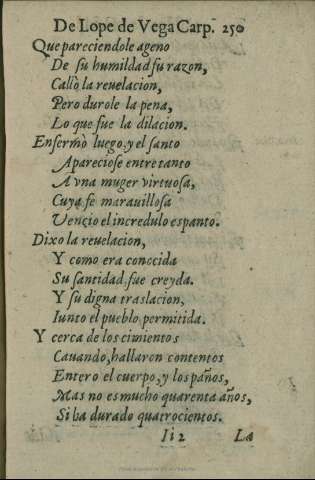 De Lope de Vega Carp. 250
Que pareciendole ageno
De su humildad su razon,
Callò la reuelacion,
Pero durole la pena,
Lo que fue la dilacion.
Enfermò luego, y el santo
Apareciose entre tanto
A vna muger virtuosa,
Cuya fe marauillosa
Vencio el incredulo espanto.
Dixo la reuelacion,
Y como era conocida
Su santidad, fue creyda.
Y su digna traslacion,
Iunto el pueblo, permitida.
Y cerca de los cimientos
Cauando, hallaron contentos
Entero el cuerpo, y los paños,
Mas no es mucho quarenta años,
Si ha durado quatrocientos.
Ii 2 La